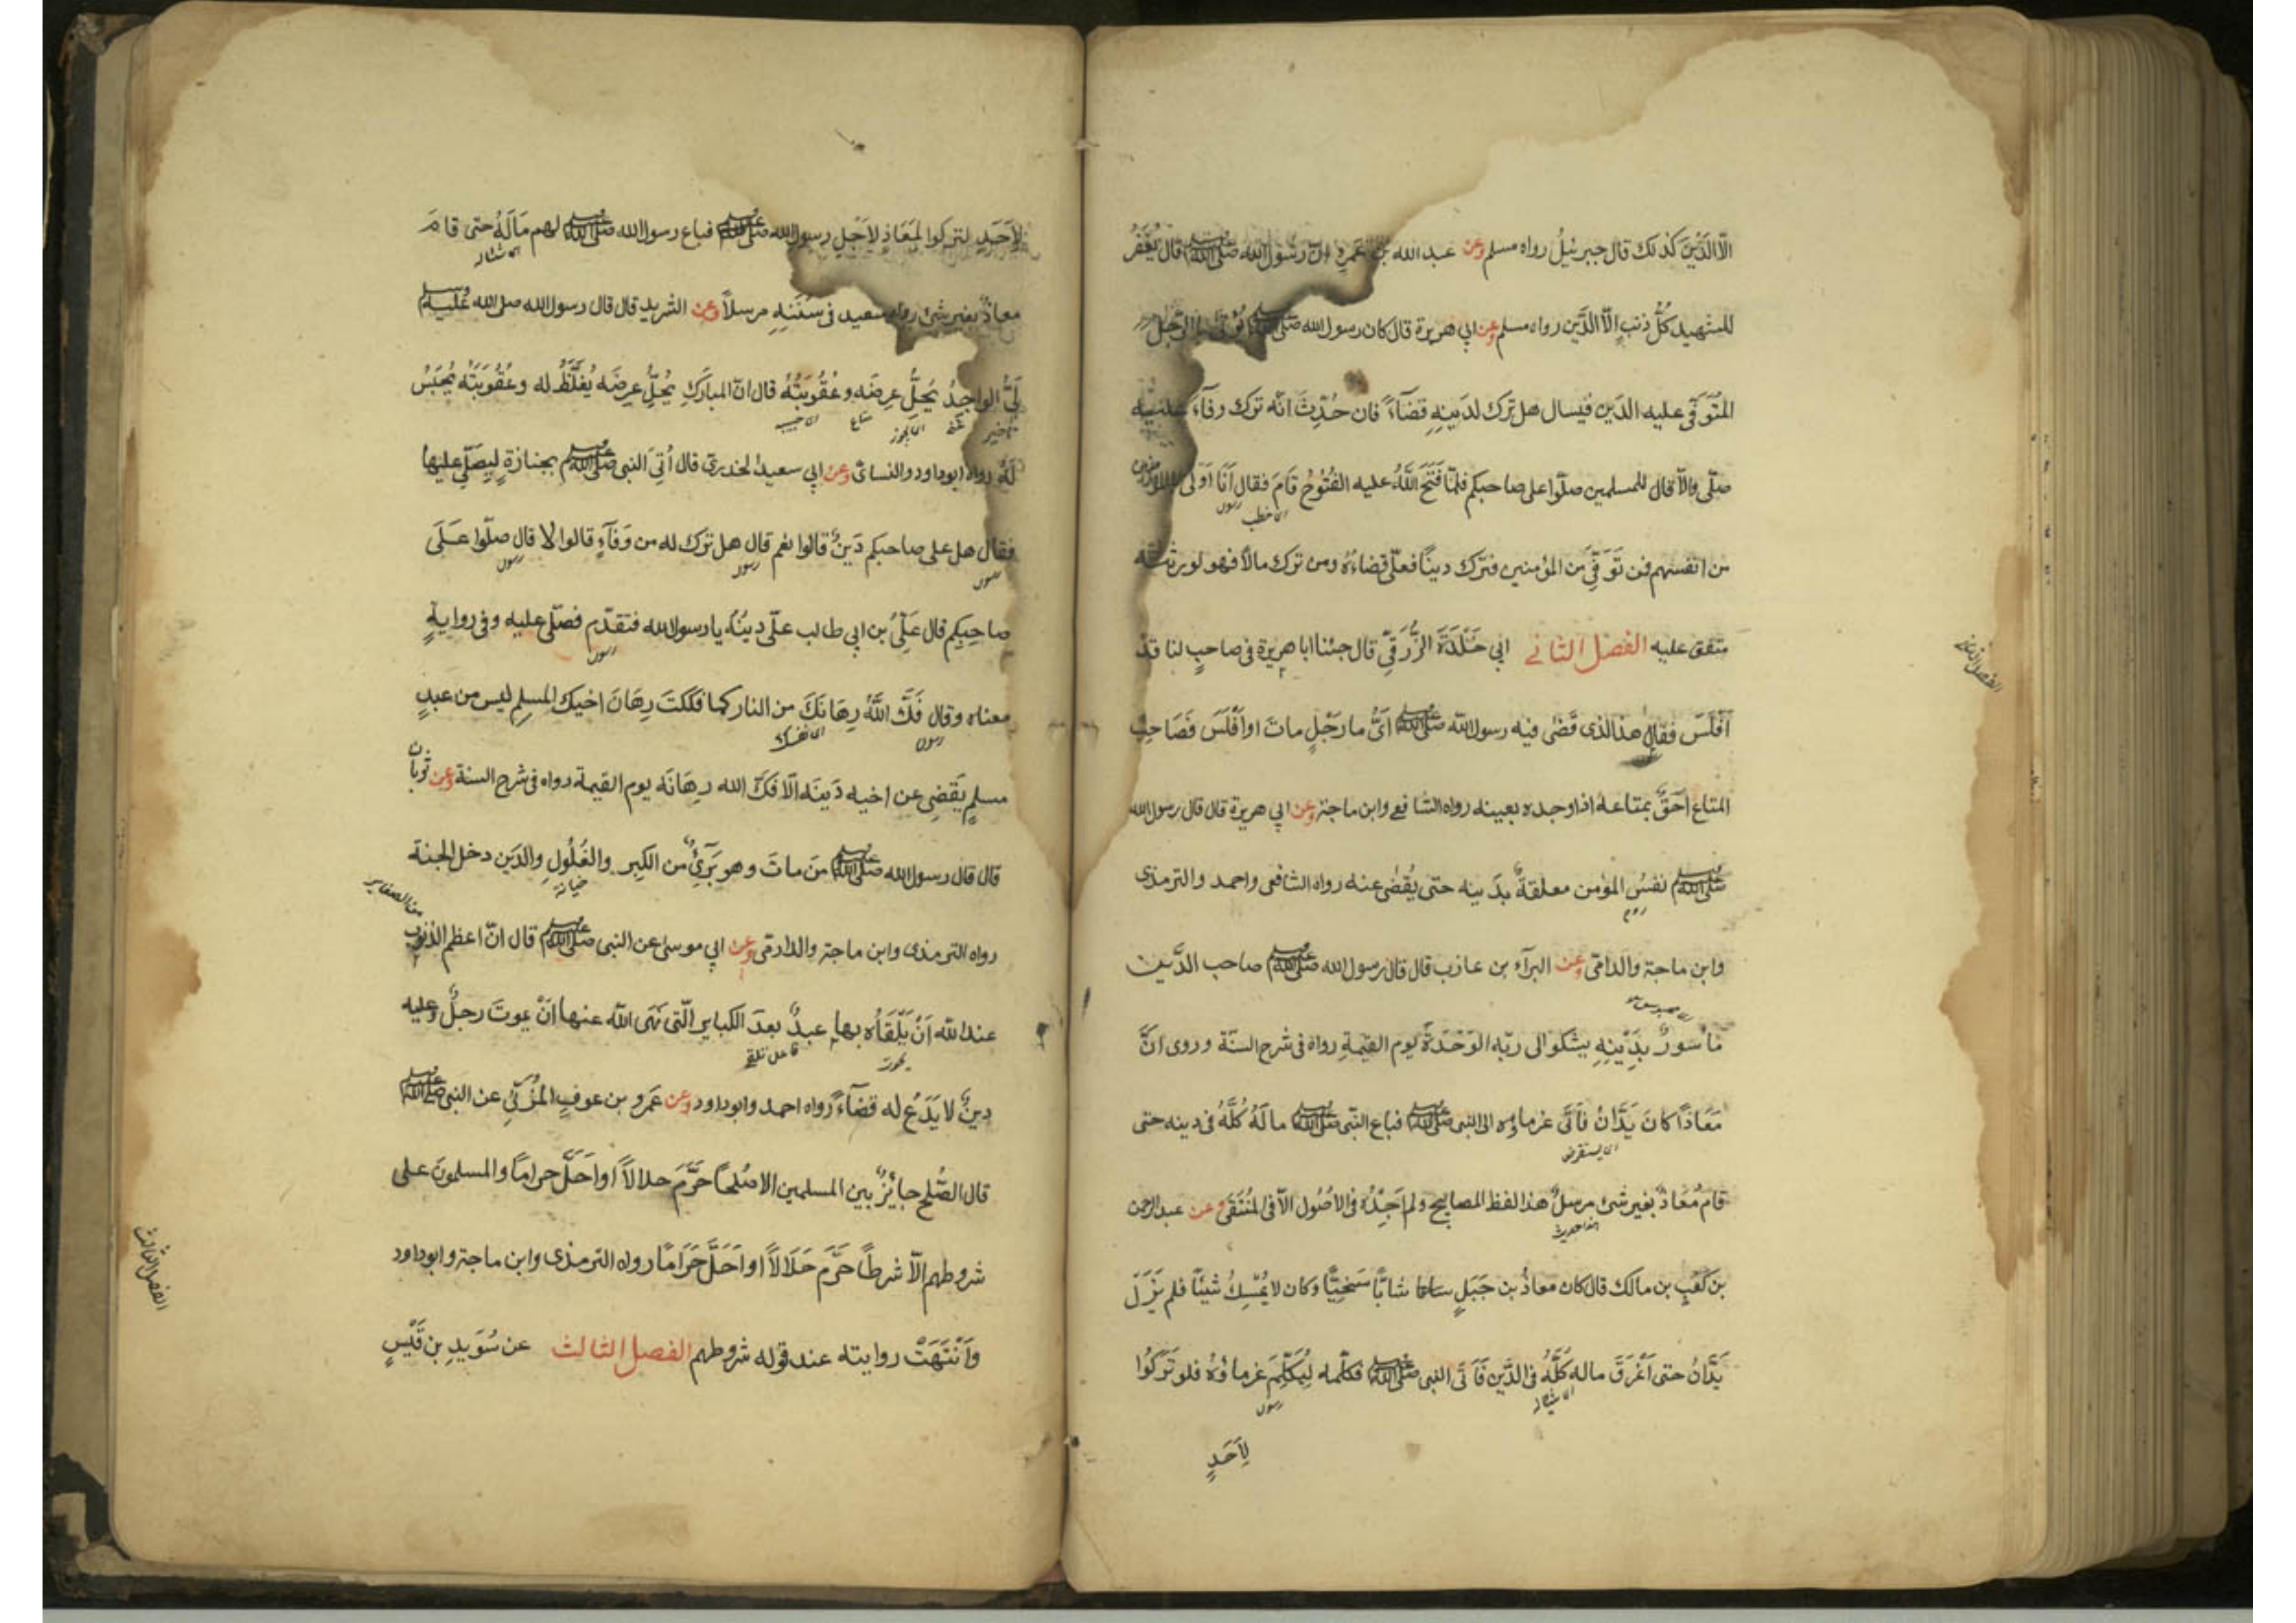 الّا الدَّيْنَ كذلك قال جبرئيلُ رواه مسلم وعن عبد الله بن عَمرٍو انّ رسُول الله ﷺ قال يُغْفَرُ
للشهيد كُلُّ ذنبٍ الّا الدَّين رواه مسلم وعن ابي هريرة قال كان رسول الله ﷺ يُؤتى بالرّجل
المتَوَفّى عليه الدَين فيسال هل تَرك لدَينِهِ قضَآءً فان حُدِّثَ انّه ترك وفاءً
صلّى والّا قال للمسلمين صلّوا على صاحبكم فلمّا فَتَحَ اللّهُ عليه الفُتُوحُ قَامَ فقال اَنَا اَولى بالمؤمنين
اى خطب
رسول
من انفسهم فمن تَوَفِّيَ من المؤمنين فتَرَك دينًا فعلَيّ قضاءُهُ ومن ترك مالًا فهو لورثته
متفق عليه الفَصْل الثاني ابي خَلْدَةَ الزُّرَقِيّ قال جئنا ابا هريرة في صاحبٍ لنا قدْ
الفصل الثاني
اَفْلَسَ فقال هذا الذى قَضٰى فيه رسول الله ﷺ اَيُّما رَجُلٍ ماتَ او اَفْلَسَ فَصَاحِبُ
المتاع اَحَقُّ بمتاعه اذا وجده بعينه رواه الشافعي وابن ماجة وعن ابي هريرة قال قال رسول الله
ﷺ نفسُ المؤمن معلقةٌ بدَينه حتى يُقضٰى عنه رواه الشافعى واحمد والترمذى
وابن ماجة والدارمى وعن البرآء بن عازب قال قال رسول الله ﷺ صاحب الدَّين
مأسورٌ بدَيْنِهِ يشكو الى ربّه الوَحْدَةَ يوم القيٰمةِ رواه فى شرح السنّة وروى انَّ
مَعَاذًا كان يَدَّانُ فَاَتَى غرماؤه الى النبى ﷺ فباع النبّى ﷺ مالَهُ كُلَّهُ فى دينه حتى
اى يستقرض
قام مُعَاذٌ بغير شئ مرسلٌ هذا لفظ المصابيح ولم اَجِدْهُ فى الاصُول الّا فى المنْتَقَى وعن عبد الرحمن
هذا حديث
بن كَعْبِ بن مالك قال كان معاذُ بن جَبَلٍ شابًّا سَخِيًّا وكان لا يُمْسِكُ شيئًا فلم يَزَلْ
يَدَّانُ حتى اَغْرَقَ ماله كُلَّهُ فى الدَّين فَاَتَى النبى ﷺ فكلّمه لِيُكَلِّمَ غرماؤهُ فلو تَرَكُوا
رسول
لِاَحَدٍ
لِاَحَدٍ لتركوا لمعَاذٍ لِاَجْلِ رسول الله ﷺ فباع رسول الله ﷺ لهم مَالَهُ حتى قامَ
معاذٌ بغير شئ رواه سعيد فى سُنَنِهِ مرسلًا وعن الشريد قال قال رسول الله صلى الله عليه وسلم
لَيُّ الواجِدُ يُحِلُّ عِرضَه وعُقُوبَتُهُ قال ابن المبارَكِ يُحِلُّ عِرضَه يُغَلَّظُ له وعُقُوبَتَه يُحْبَسُ
تاخير
لَهُ رواه ابوداود والنسائى وعن ابي سعيد الخدري قال اُتِيَ النبى ﷺ بجنازةٍ ليصَلّي عليها
فقال هل على صاحبكم دَينٌ قالوا نعم قال هل ترك له من وَفَآءٍ قالوا لا قال صلّوا عَلَى
رسول
رسول
رسول
صاحِبِكم قال عَلِيُّ بن ابي طالب علَيّ دينُهُ يا رسول الله فتقدّم فصلّى عليه وفى روايةٍ
رسول
معناه وقال فَكَّ اللّهُ رِهَانَكَ من النار كما فَكَكْتَ رِهَانَ اخيك المسلم ليس من عبدٍ
رسول
اى نفسك
مسلمٍ يَقضِى عن اخيه دَينَه الّا فَكَّ الله رِهَانَه يوم القيمة رواه فى شرح السنة وعن ثوبان
قال قال رسول الله ﷺ مَن ماتَ وهو بَرِيٌّ من الكِبر والغُلُولِ والدَين دخل الجنة
خيانة
رواه الترمذى وابن ماجة والدارمى وعن ابي موسى عن النبى ﷺ قال انّ اعظم الذنوب
من الصغاير
عند الله اَنْ يَلْقَاهُ بها عبدٌ بعدَ الكباير الّتى نَهَى الله عنها اَنْ يموتَ رجلٌ وعليه
دينٌ لا يَدَعُ له قضَآءً رواه احمد وابوداود وعن عَمرو بن عوفٍ المُزَنِيّ عن النبى ﷺ
قال الصُّلح جايزٌ بين المسلمين الا صُلحًا حَرَّمَ حلالًا او احَلَّ حرامًا والمسلمون على
شروطهم الّا شرطًا حَرَّمَ حَلَالًا او اَحَلَّ حَرَامًا رواه الترمذى وابن ماجة وابوداود
الفصل الثالث
وَانْتَهَتْ روايته عند قوله شروطهم الفصل الثالث عن سُوَيدِ بن قَيْسٍ